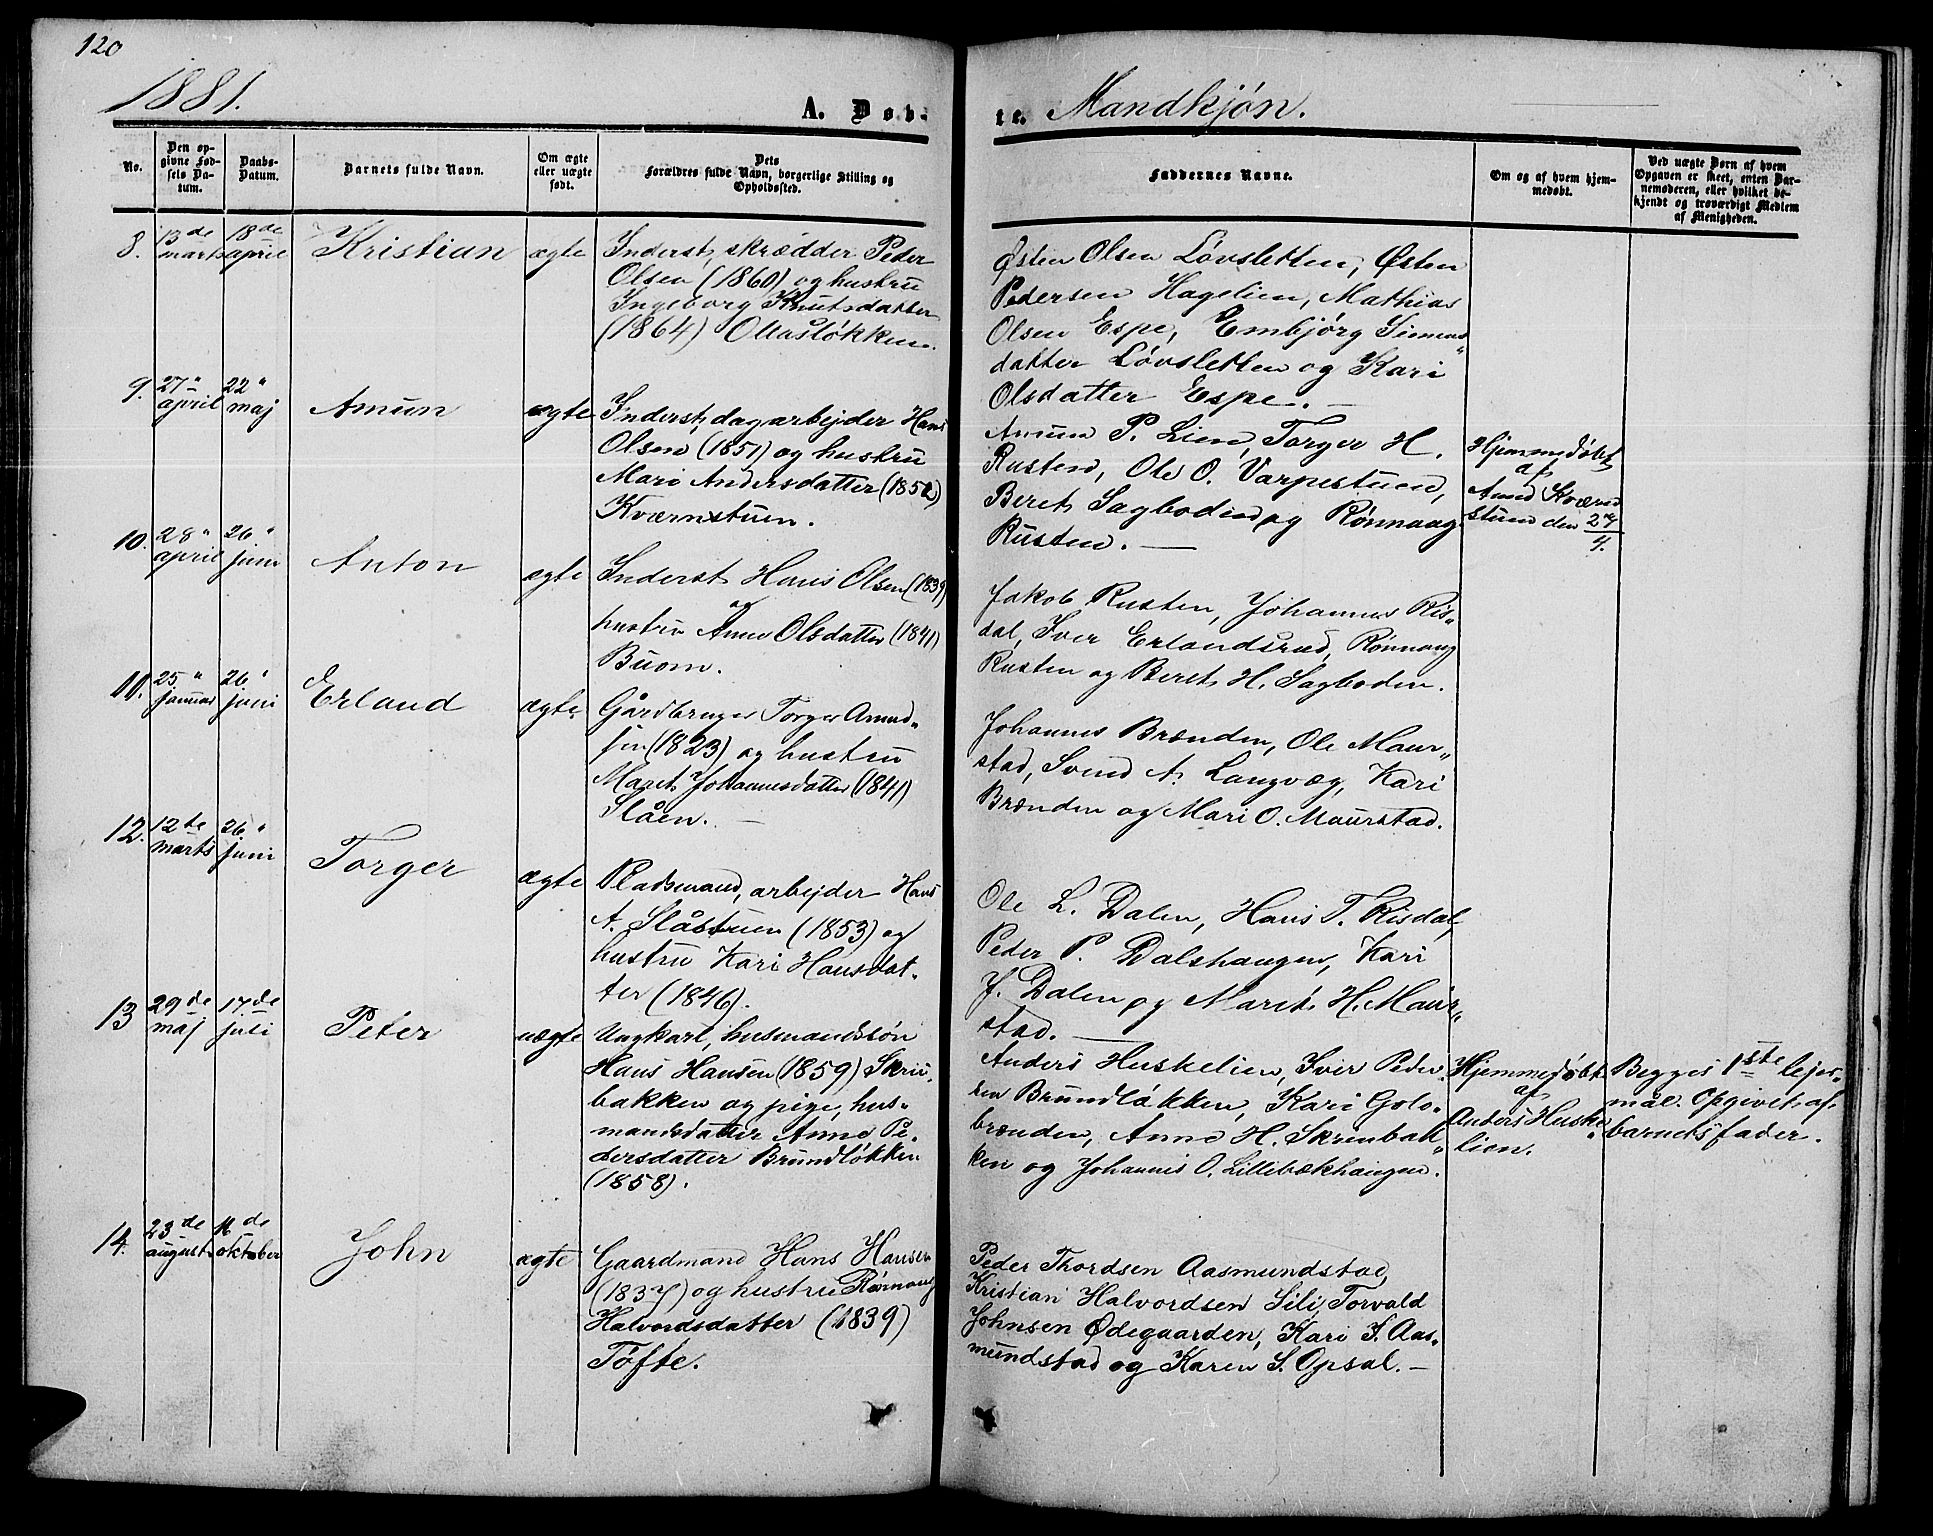 120
1881.
A. Døb-
te. Mandkjøn.
No.
Den op-
givne Fød-
sels Da-
tum.
Daabs-
Datum.
Barnets fulde Navn.
Om ægte
eller uægte
født.
Dets
Forældres fulde Navn, borgerlige Stilling og
Opholdssted.
Faddernes Navne.
Om og af hvem hjem-
medøbt.
Ved uægte Børn af hvem
Opgaven er skeet, enten Bar-
nemoderen, eller hvilket be-
kjendt og troværdigt Medlem
af Menigheden.
8.
13de
marts
18de
april
Kristian
ægte
Inderst, skrædder Peder
Olsen (1860) og hustru
Ingeborg Knutsdatter
(1864) Ottasløkken.
Østen Olsen Løvsletten, Østen
Pedersen Hagelien, Mathias
Olsen Espe, Embjørg Simens
datter Løvsletten og Kari
Olsdatter Espe. —
9.
27"
april
22"
maj
Amun
ægte
Inderst, dagarbejder Hans
Olsen (1851) og hustru
Mari Andersdatter (1852)
Kværnstuen.
Amun P. Lien, Torger H.
Rusten, Ole O. Varpestuen,
Beret Sagboden og Rønnaug
Rusten. —
Hjemmedøbt
af
Amund Kværn
stuen den 27/4.
10.
28"
april
26"
juni
Anton
ægte
Inderst Hans Olsen (1839)
og
hustru Anne Olsdatter (1841)
Buom.
Jakob Rusten, Johannes Ris-
dal, Iver Erlandsrud, Rønnaug
Rusten og Beret H. Sagboden.
11.
25"
januar
26"
juni
Erland
ægte
Gårdbruger Torger Amund-
sen (1823) og hustru
Marit Johannesdatter (1841)
Slåen. —
Johannes Brænden, Ole Maur-
stad, Svend A. Langvæg, Kari
Brænden og Mari O. Maurstad.
12.
12te
marts
26"
juni
Torger
ægte
Pladsmand, arbejder Hans
A. Slåstuen (1853) og
hustru Kari Hansdat-
ter (1846).
Ole L. Dalen, Hans T. Risdal,
Peder P. Dalshaugen, Kari
J. Dalen og Marit H. Maur-
stad. —
13
29de
maj
17de
juli
Peter
uægte
Ungkarl, husmandssøn
Hans Hansen (1859) Skrin-
bakken og pige, hus-
mandsdatter Anne Pe-
dersdatter Brundløkken
(1858).
Anders Huskelien, Iver Peder-
sen Brundløkken, Kari Golo-
brænden, Anne H. Skrinbak-
ken og Johannis O. Lillebækhaugen.
Hjemmedøbt
af
Anders Huske-
lien.
Begges 1ste lejer-
mål. Opgivet af
barnets fader.
14.
23de
august
16de
oktober
John
ægte
Gaardmand Hans Hansen
(1837) og hustru Rønnaug
Halvordsdatter (1839)
Tofte.
Peder Thordsen Aasmundstad,
Kristian Halvordsen Sili, Torvald
Johnsen Ødegaarden, Kari J. Aas-
mundstad og Karen S. Opsal. —